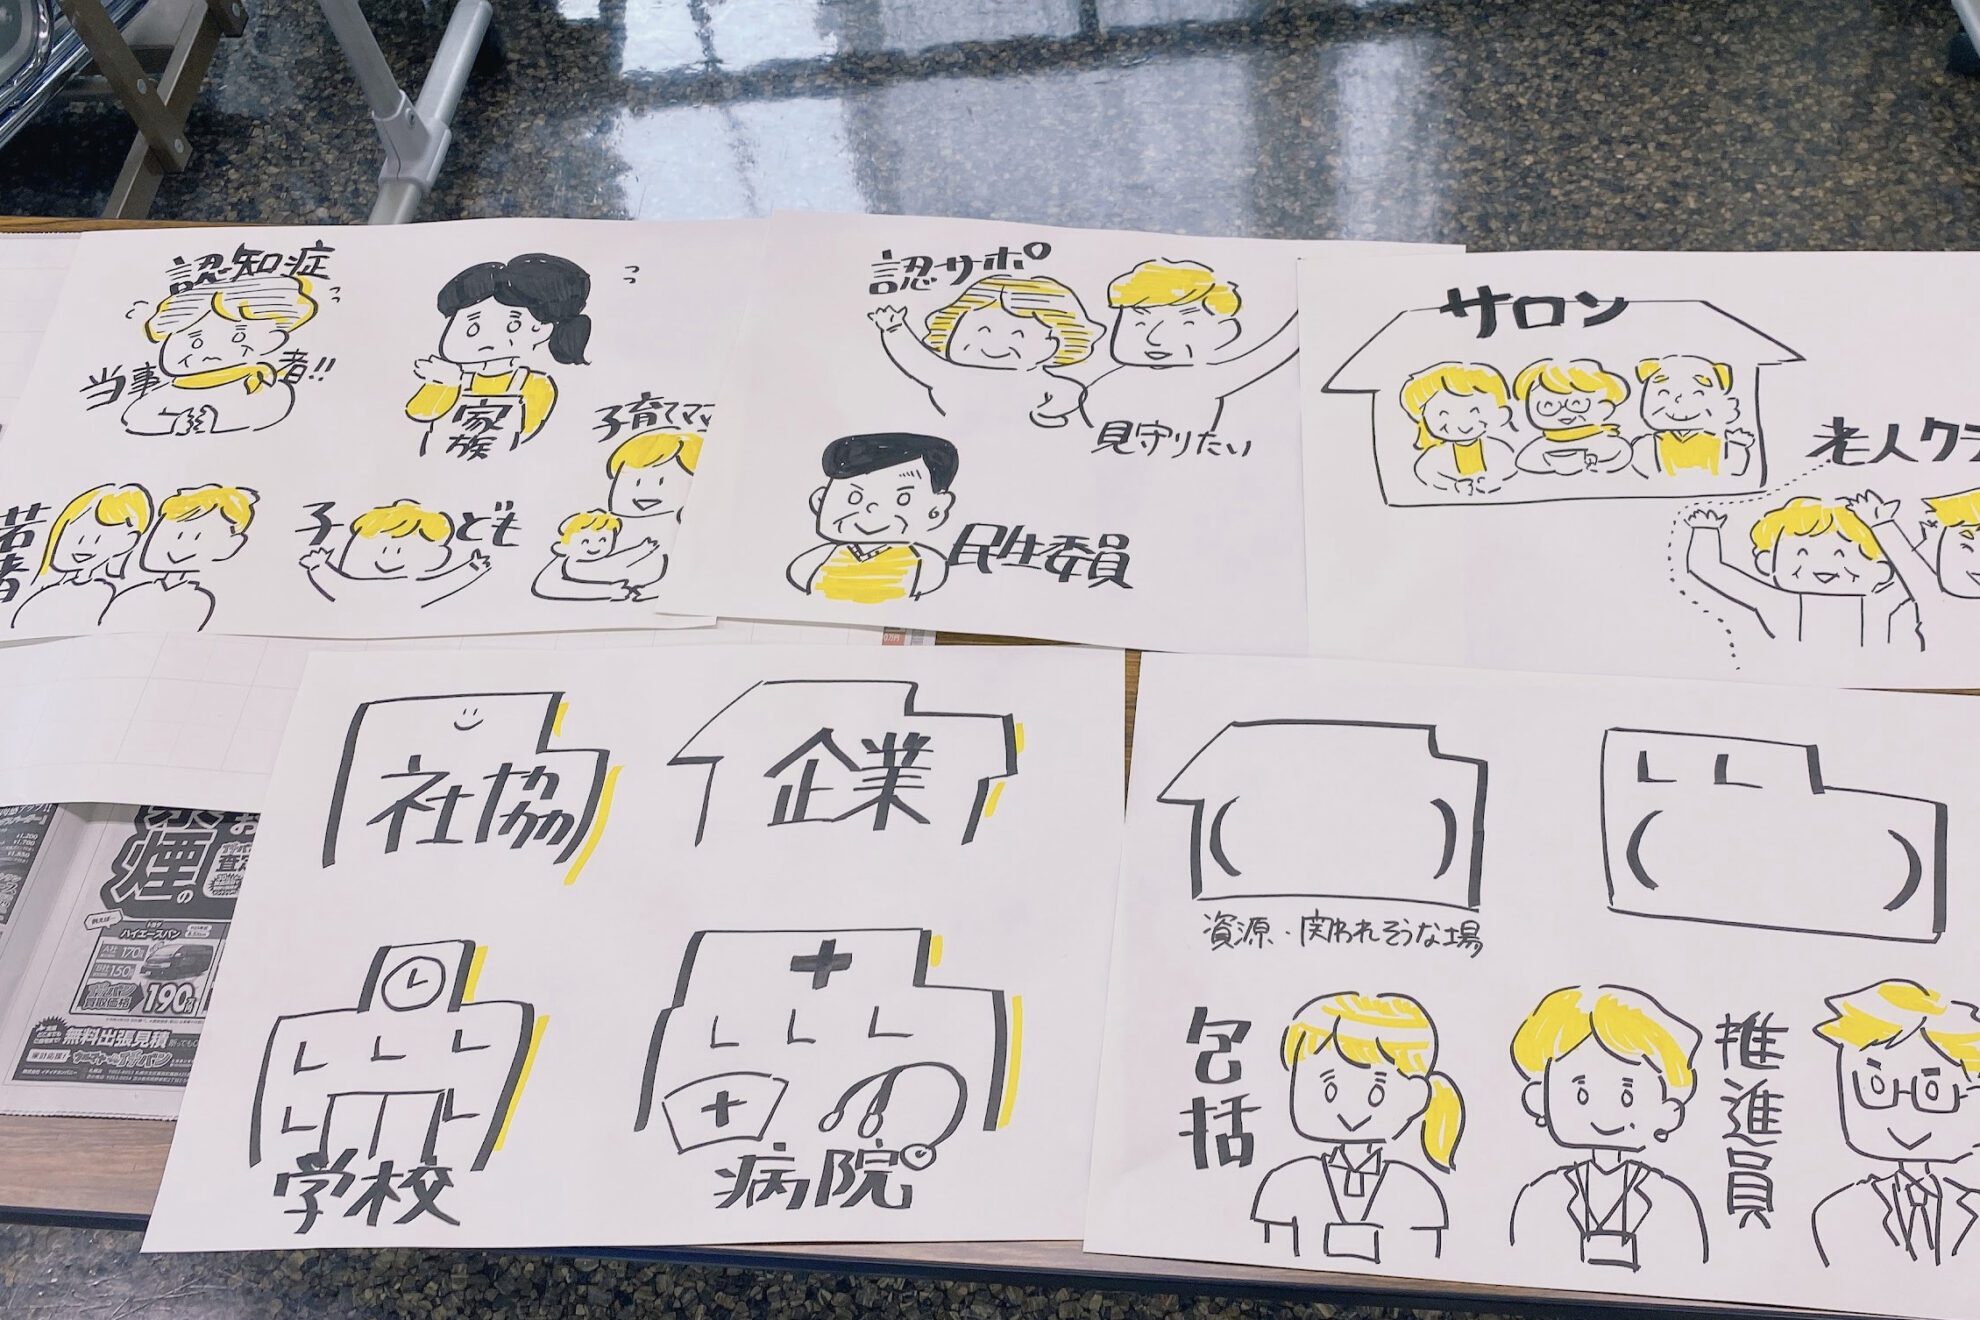 認知症
当事者!!
家族
子育てママ
若者
子ども
認サポ
見守りたい
民生委員
サロン
老人クラ
社協
企業
学校
病院
資源・関われそうな場
包括
推進員
煙の
ハイエースバン
A社 170
B社 150
買取価格 190
無料出張見積